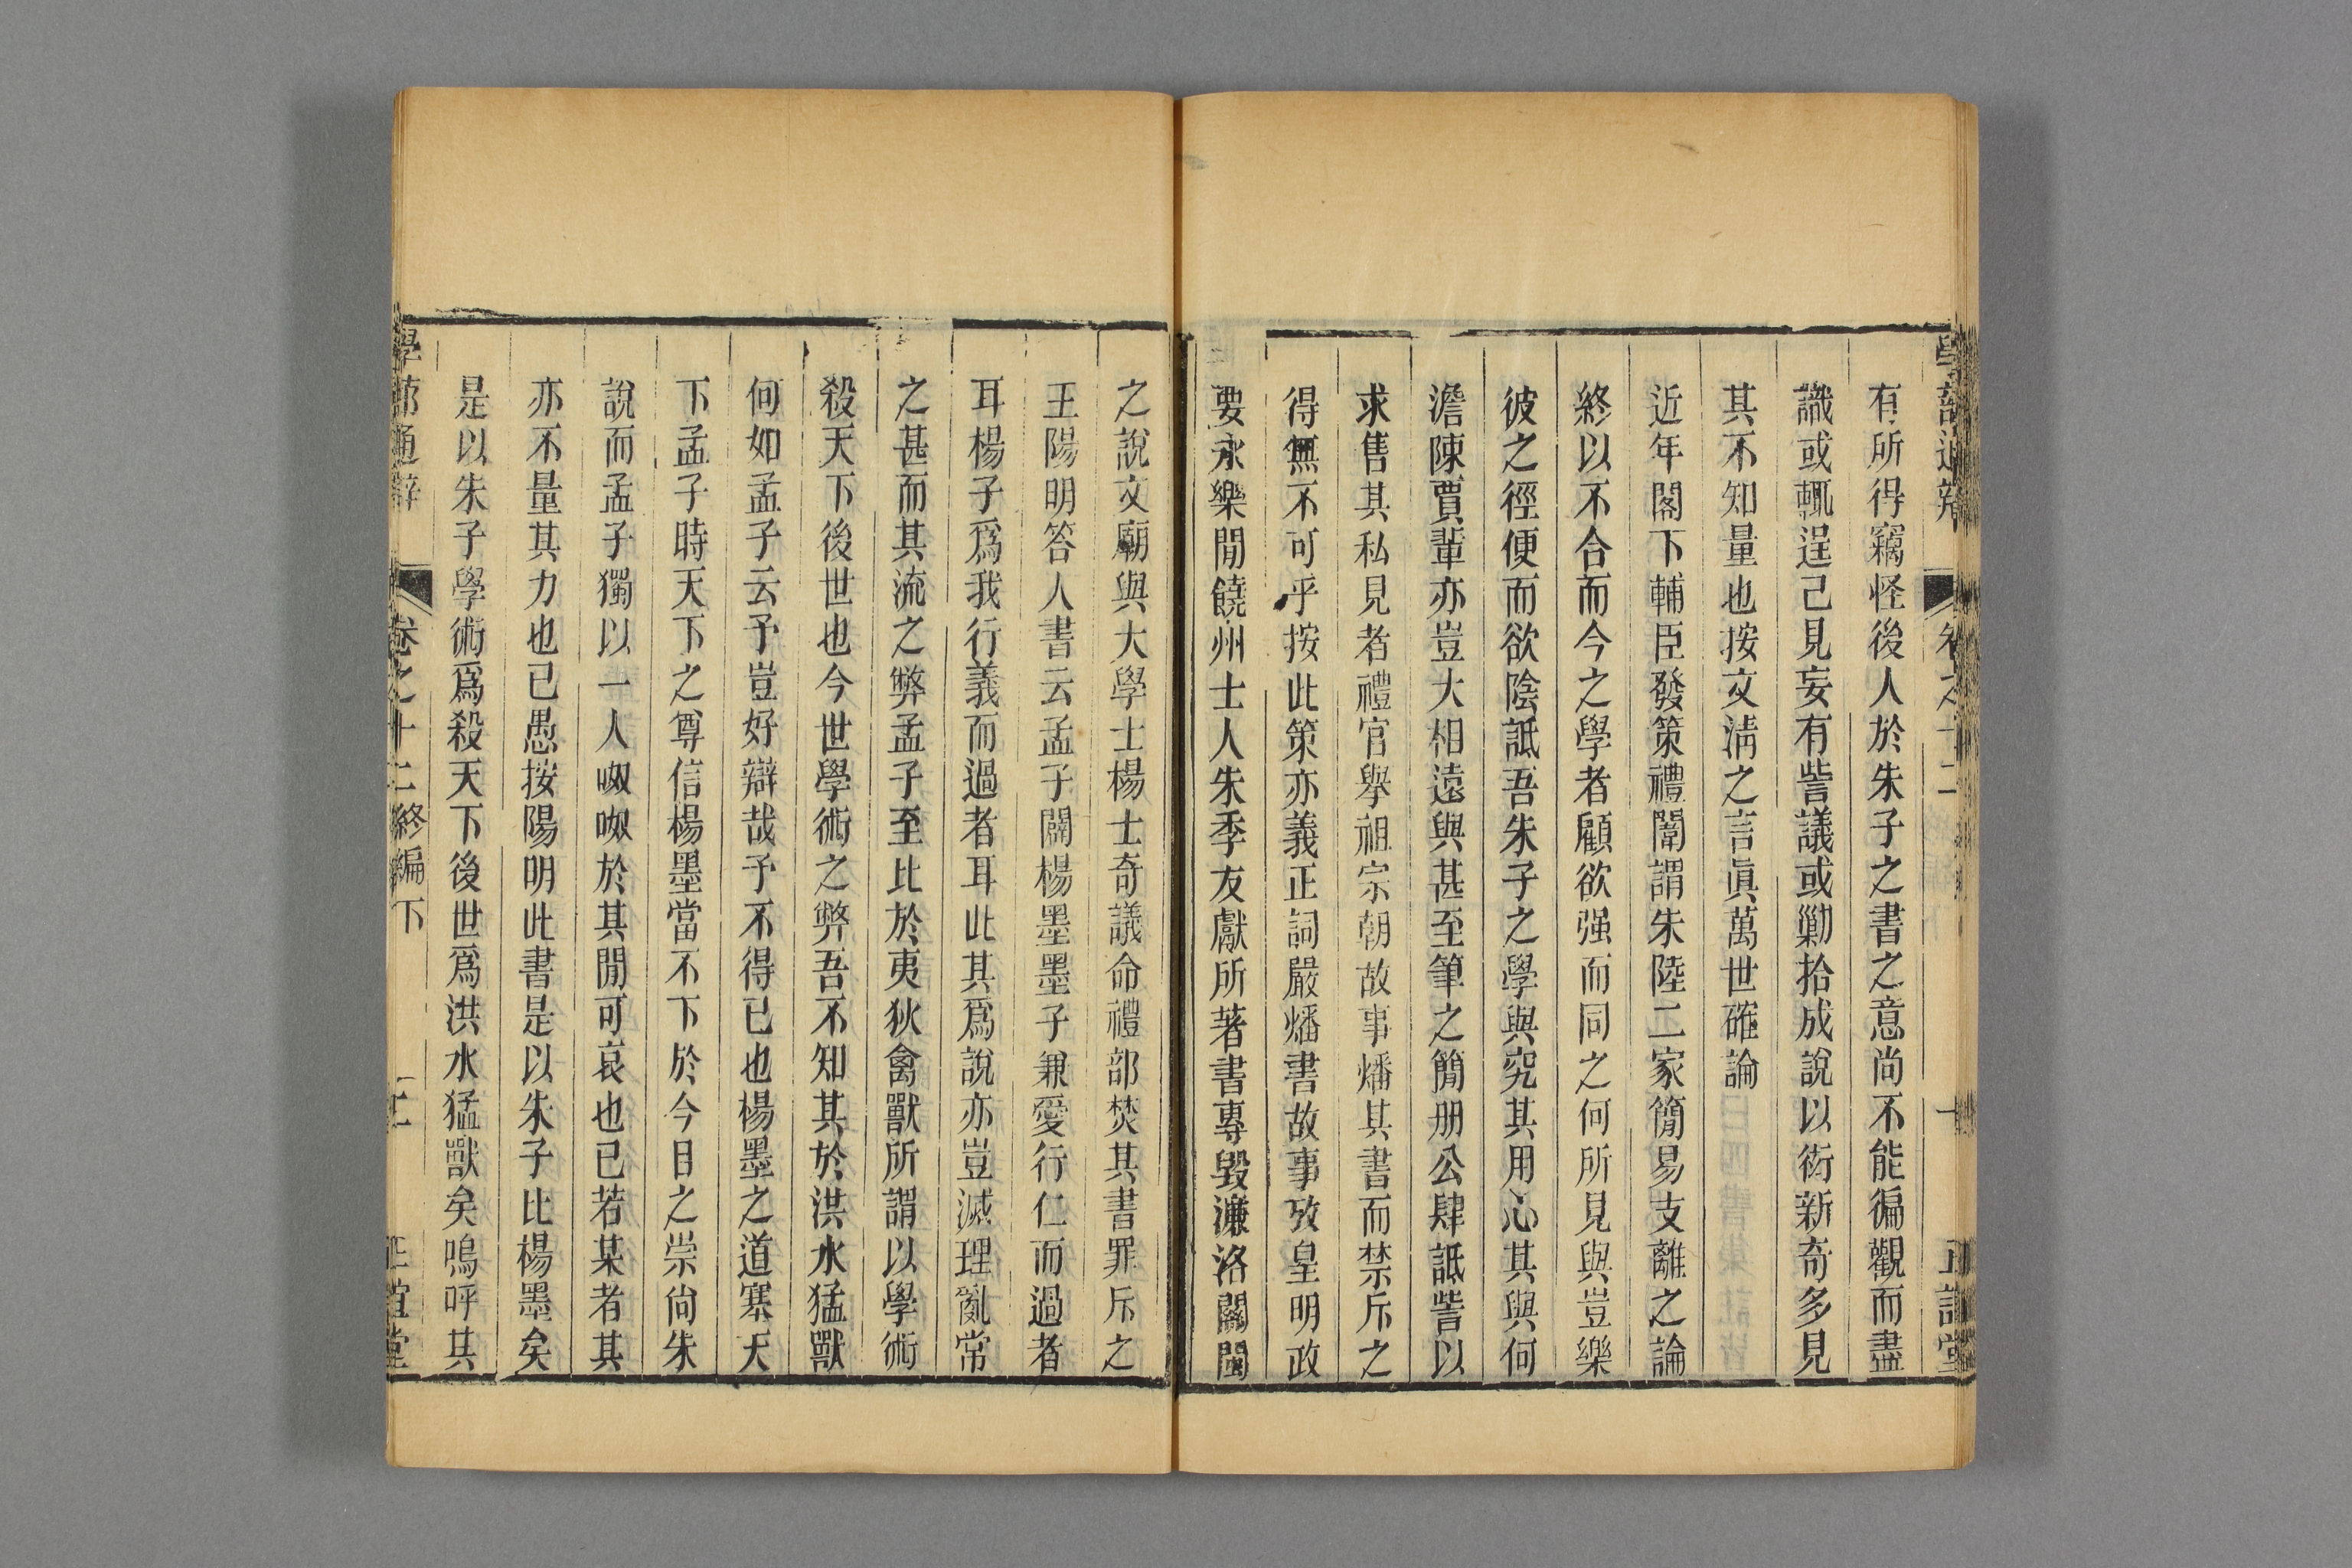 有所得竊怪後人於朱子之書之意尚不能徧觀而盡
識或輒逞己見妄有訾議或勦拾成說以衒新奇多見
其不知量也按文淸之言眞萬世確論
近年閣下輔臣發策禮闈謂朱陸二家簡易支離之論
終以不合而今之學者顧欲强而同之何所見與豈樂
彼之徑便而欲陰詆吾朱子之學與究其用心其與何
澹陳賈輩亦豈大相遠與甚至筆之簡册公肆詆訾以
求售其私見者禮官舉祖宗朝故事燔其書而禁斥之
得無不可乎按此策亦義正詞嚴燔書故事攷皇明政
要永樂閒饒州士人朱季友獻所著書專毀濂洛關閩
之說文廟與大學士楊士奇議命禮部焚其書罪斥之
王陽明答人書云孟子闢楊墨墨子兼愛行仁而過者
耳楊子爲我行義而過者耳此其爲說亦豈滅理亂常
之甚而其流之弊孟子至比於夷狄禽獸所謂以學術
殺天下後世也今世學術之弊吾不知其於洪水猛獸
何如孟子云予豈好辯哉予不得已也楊墨之道塞天
下孟子時天下之尊信楊墨當不下於今日之崇尙朱
說而孟子獨以一人呶呶於其閒可哀也已若某者其
亦不量其力也已愚按陽明此書是以朱子比楊墨矣
是以朱子學術爲殺天下後世爲洪水猛獸矣嗚呼其
學蔀通辯 卷之十二終編下 十一 正誼堂